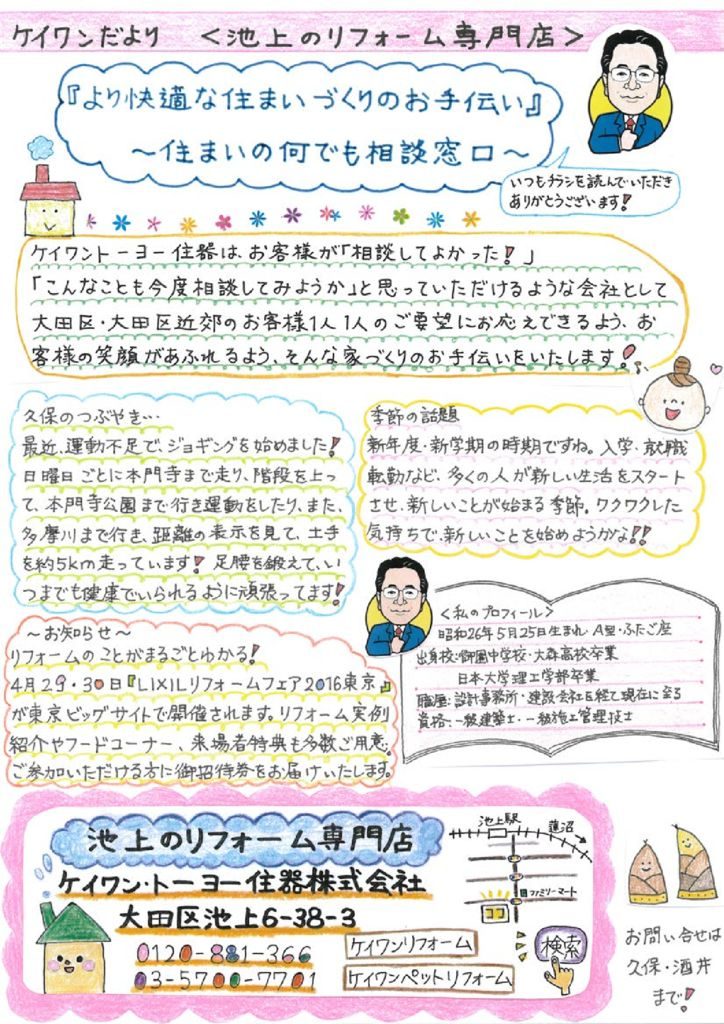 ケイワンだより　＜池上のリフォーム専門店＞
『より快適な住まいづくりのお手伝い』
～住まいの何でも相談窓口～
いつもチラシを読んでいただき
ありがとうございます!
ケイワントーヨー住器は、お客様が「相談してよかった!」
「こんなことも今度相談してみようか」と思っていただけるような会社として
大田区・大田区近郊のお客様1人1人のご要望にお応えできるよう、お
客様の笑顔があふれるよう、そんな家づくりのお手伝いをいたします!
久保のつぶやき…
最近、運動不足で、ジョギングを始めました!
日曜日ごとに本門寺まで走り、階段を上っ
て、本門寺公園まで行き運動をしたり、また、
多摩川まで行き、距離の表示を見て、土手
を約5km走っています! 足腰を鍛えて、い
つまでも健康でいられるように頑張ってます!
季節の話題
新年度・新学期の時期ですね。入学・就職
転勤など、多くの人が新しい生活をスタート
させ、新しいことが始まる季節。ワクワクした
気持ちで、新しいことを始めようかな!!
＜私のプロフィール＞
昭和26年5月25日生まれ・A型・ふたご座
出身校:御園中学校・大森高校卒業
日本大学理工学部卒業
職歴:設計事務所・建設会社を経て現在に至る
資格:一級建築士・一級施工管理技士
～お知らせ～
リフォームのことがまるごとわかる!
4月29・30日『LIXILリフォームフェア2016東京』
が東京ビッグサイトで開催されます。リフォーム実例
紹介やフードコーナー、来場者特典も多数ご用意。
ご参加いただける方に御招待券をお届けいたします。
池上のリフォーム専門店
ケイワン・トーヨー住器株式会社
大田区池上6-38-3
0120-881-366
03-5700-7701
ケイワンリフォーム
ケイワンペットリフォーム
検索
池上駅
蓮沼
ファミリーマート
ココ
お問い合せは
久保・酒井
まで!